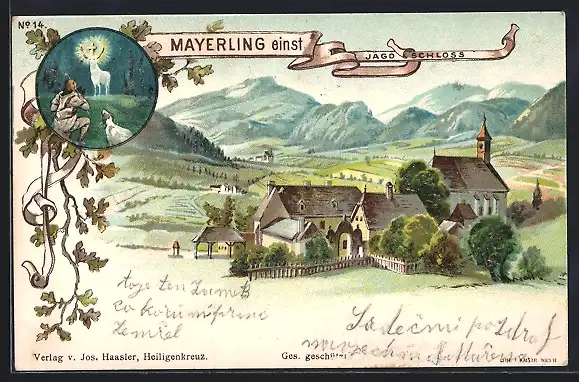 No 14.
MAYERLING einst
JAGDSCHLOSS
toje ten zamek
co korunní princ
zemřel
Srdečný pozdraf
Verlag v. Jos. Haasler, Heiligenkreuz.
Ges. geschützt